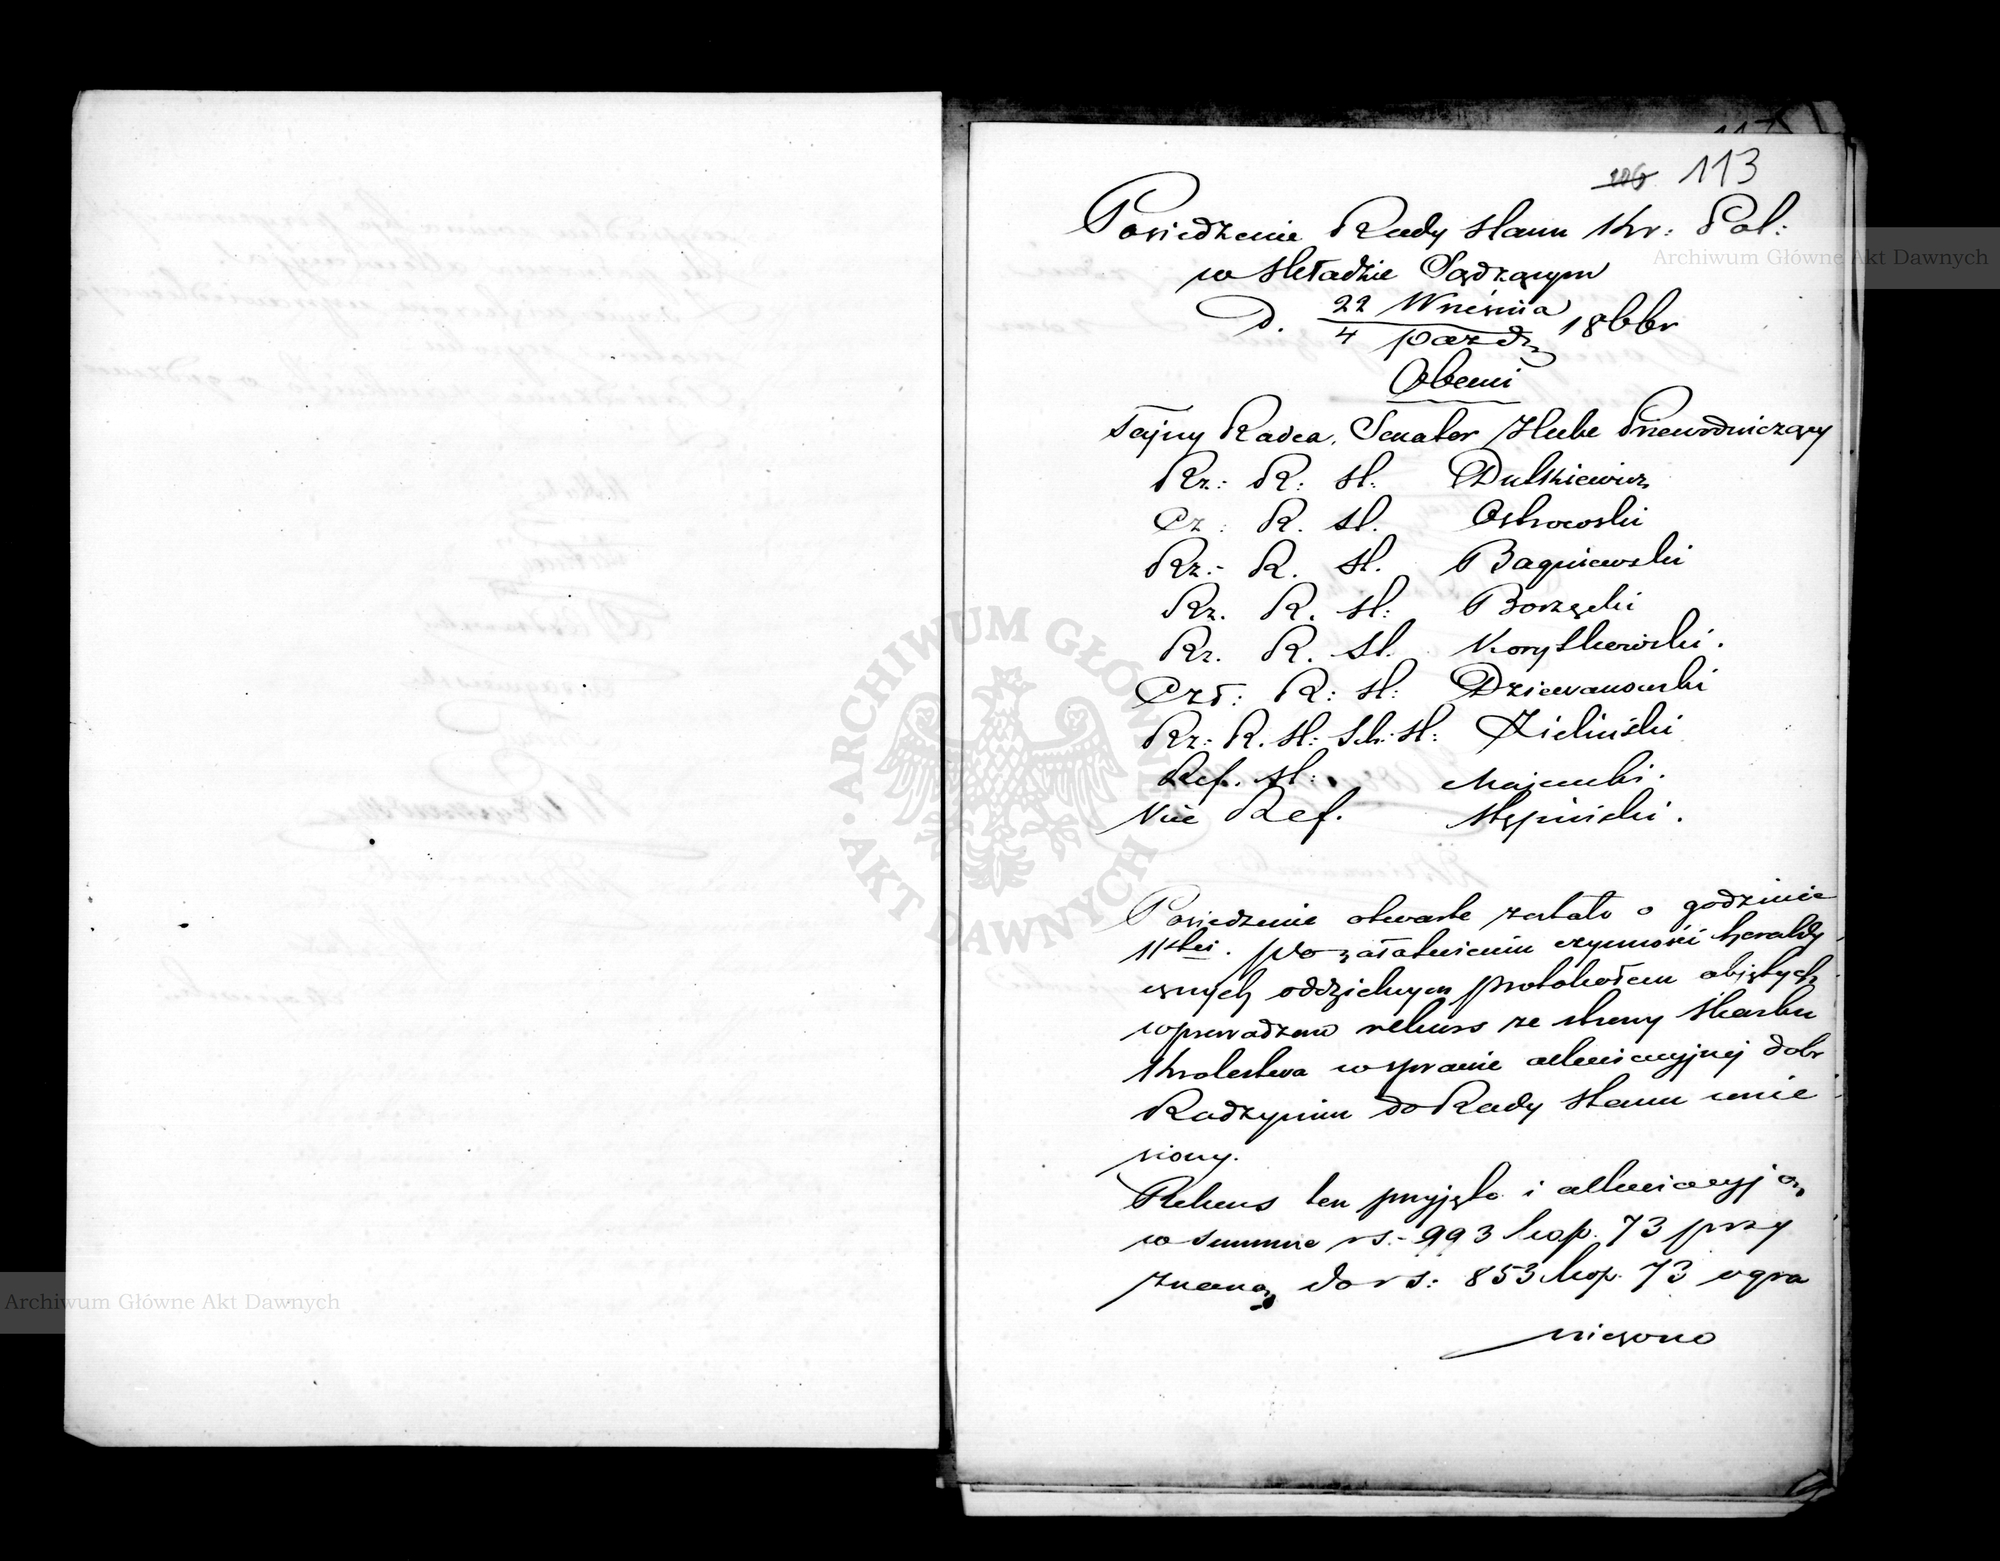 106 113
Posiedzenie Rady Stanu Kr: Pol:
w składzie Sądzącym
D. 22 Września / 4 paźdz 1866r
Obecni
Tajny Radca, Senator Hube Przewodniczący
Rz: R: St: Dutkiewicz
Cz: R. St. Ostrowski
Rz:- R. St. Bagniewski
Rz. R. St: Borzęcki
Rz. R. St. Korytkowski.
Czł: R: St: Dziewanowski
Rz: R. St: Sek: St: Zieliński
Ref. St: Majewski.
Vice Ref. Stępiński.
Posiedzenie otwarte zostało o godzinie
11stej. po załatwieniu czynności heraldy
cznych oddzielnym protokołem objętych,
wprowadzono rekurs ze strony Skarbu
Krolestwa w sprawie alluwicyjnej dobr
Radzymin do Rady Stanu wnie
siony.
Rekurs ten przyjęto i
w summie rs.- 993 kop. 73 przy
znaną do rs: 853 kop. 73 ogra
niczono
ARCHIWUM GŁÓWNE AKT DAWNYCH
Archiwum Główne Akt Dawnych
Archiwum Główne Akt Dawnych